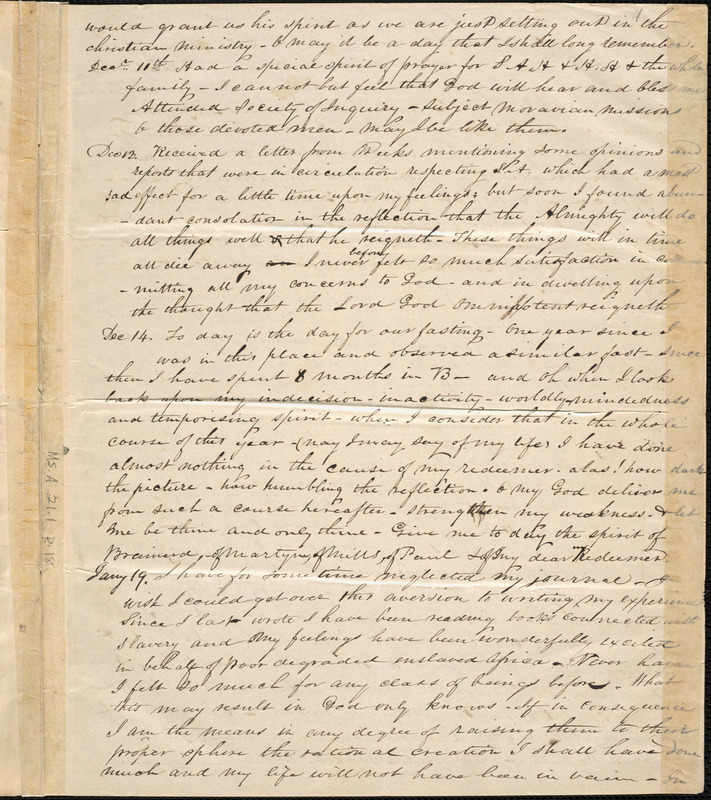 would grant us his spirit as we are just setting out in the
christian ministry - O may it be a day that I shall long remember.
Decr. 11th Had a special spirit of prayer for S. A. H & H. H & the whole
family - I cannot but feel that God will hear and bless me
Attended Society of Inquiry - subject Moravian missions
O those devoted men - May I be like them.
Dec 12. Received a letter from Weeks mentioning some opinions and
reports that were in circulation respecting S.A. which had a most
sad effect for a little time upon my feelings; but soon I found abun-
-dant consolation in the reflection that the Almighty will do
all things well & that he reigneth - These things will in time
all die away I never before felt so much satisfaction in com
-mitting all my concerns to God - and in dwelling upon
the thought that the Lord God omnipotent reigneth
Dec 14. To day is the day for our fasting - One year since I
was in this place and observed a similar fast - since
then I have spent 8 months in B - and oh when I look
back upon my indecision - inactivity - worldly mindedness
and temporising spirit - when I consider that in the whole
course of this year - (nay I may say of my life) I have done
almost nothing in the cause of my redeemer. alas! how dark
the picture - how humbling the reflection. O my God deliver me
from such a course hereafter - strengthen my weakness - & let
me be thine and only thine - Give me to day the spirit of
Brainerd, of Martyn, of Mills, of Paul & of my dear Redeemer.
Jany 19. I have for some time neglected my journal - I
wish I could get over this aversion to writing my experience
Since I last wrote I have been reading books connected with
slavery and my feelings have been wonderfully excited
in behalf of poor degraded enslaved Africa - Never have
I felt so much for any class of beings before - What
this may result in God only knows - If in consequence
I am the means in any degree of raising them to their
proper sphere the rational creation I shall have done
much and my life will not have been in vain - In
Ms. A. 21.1 p. 18